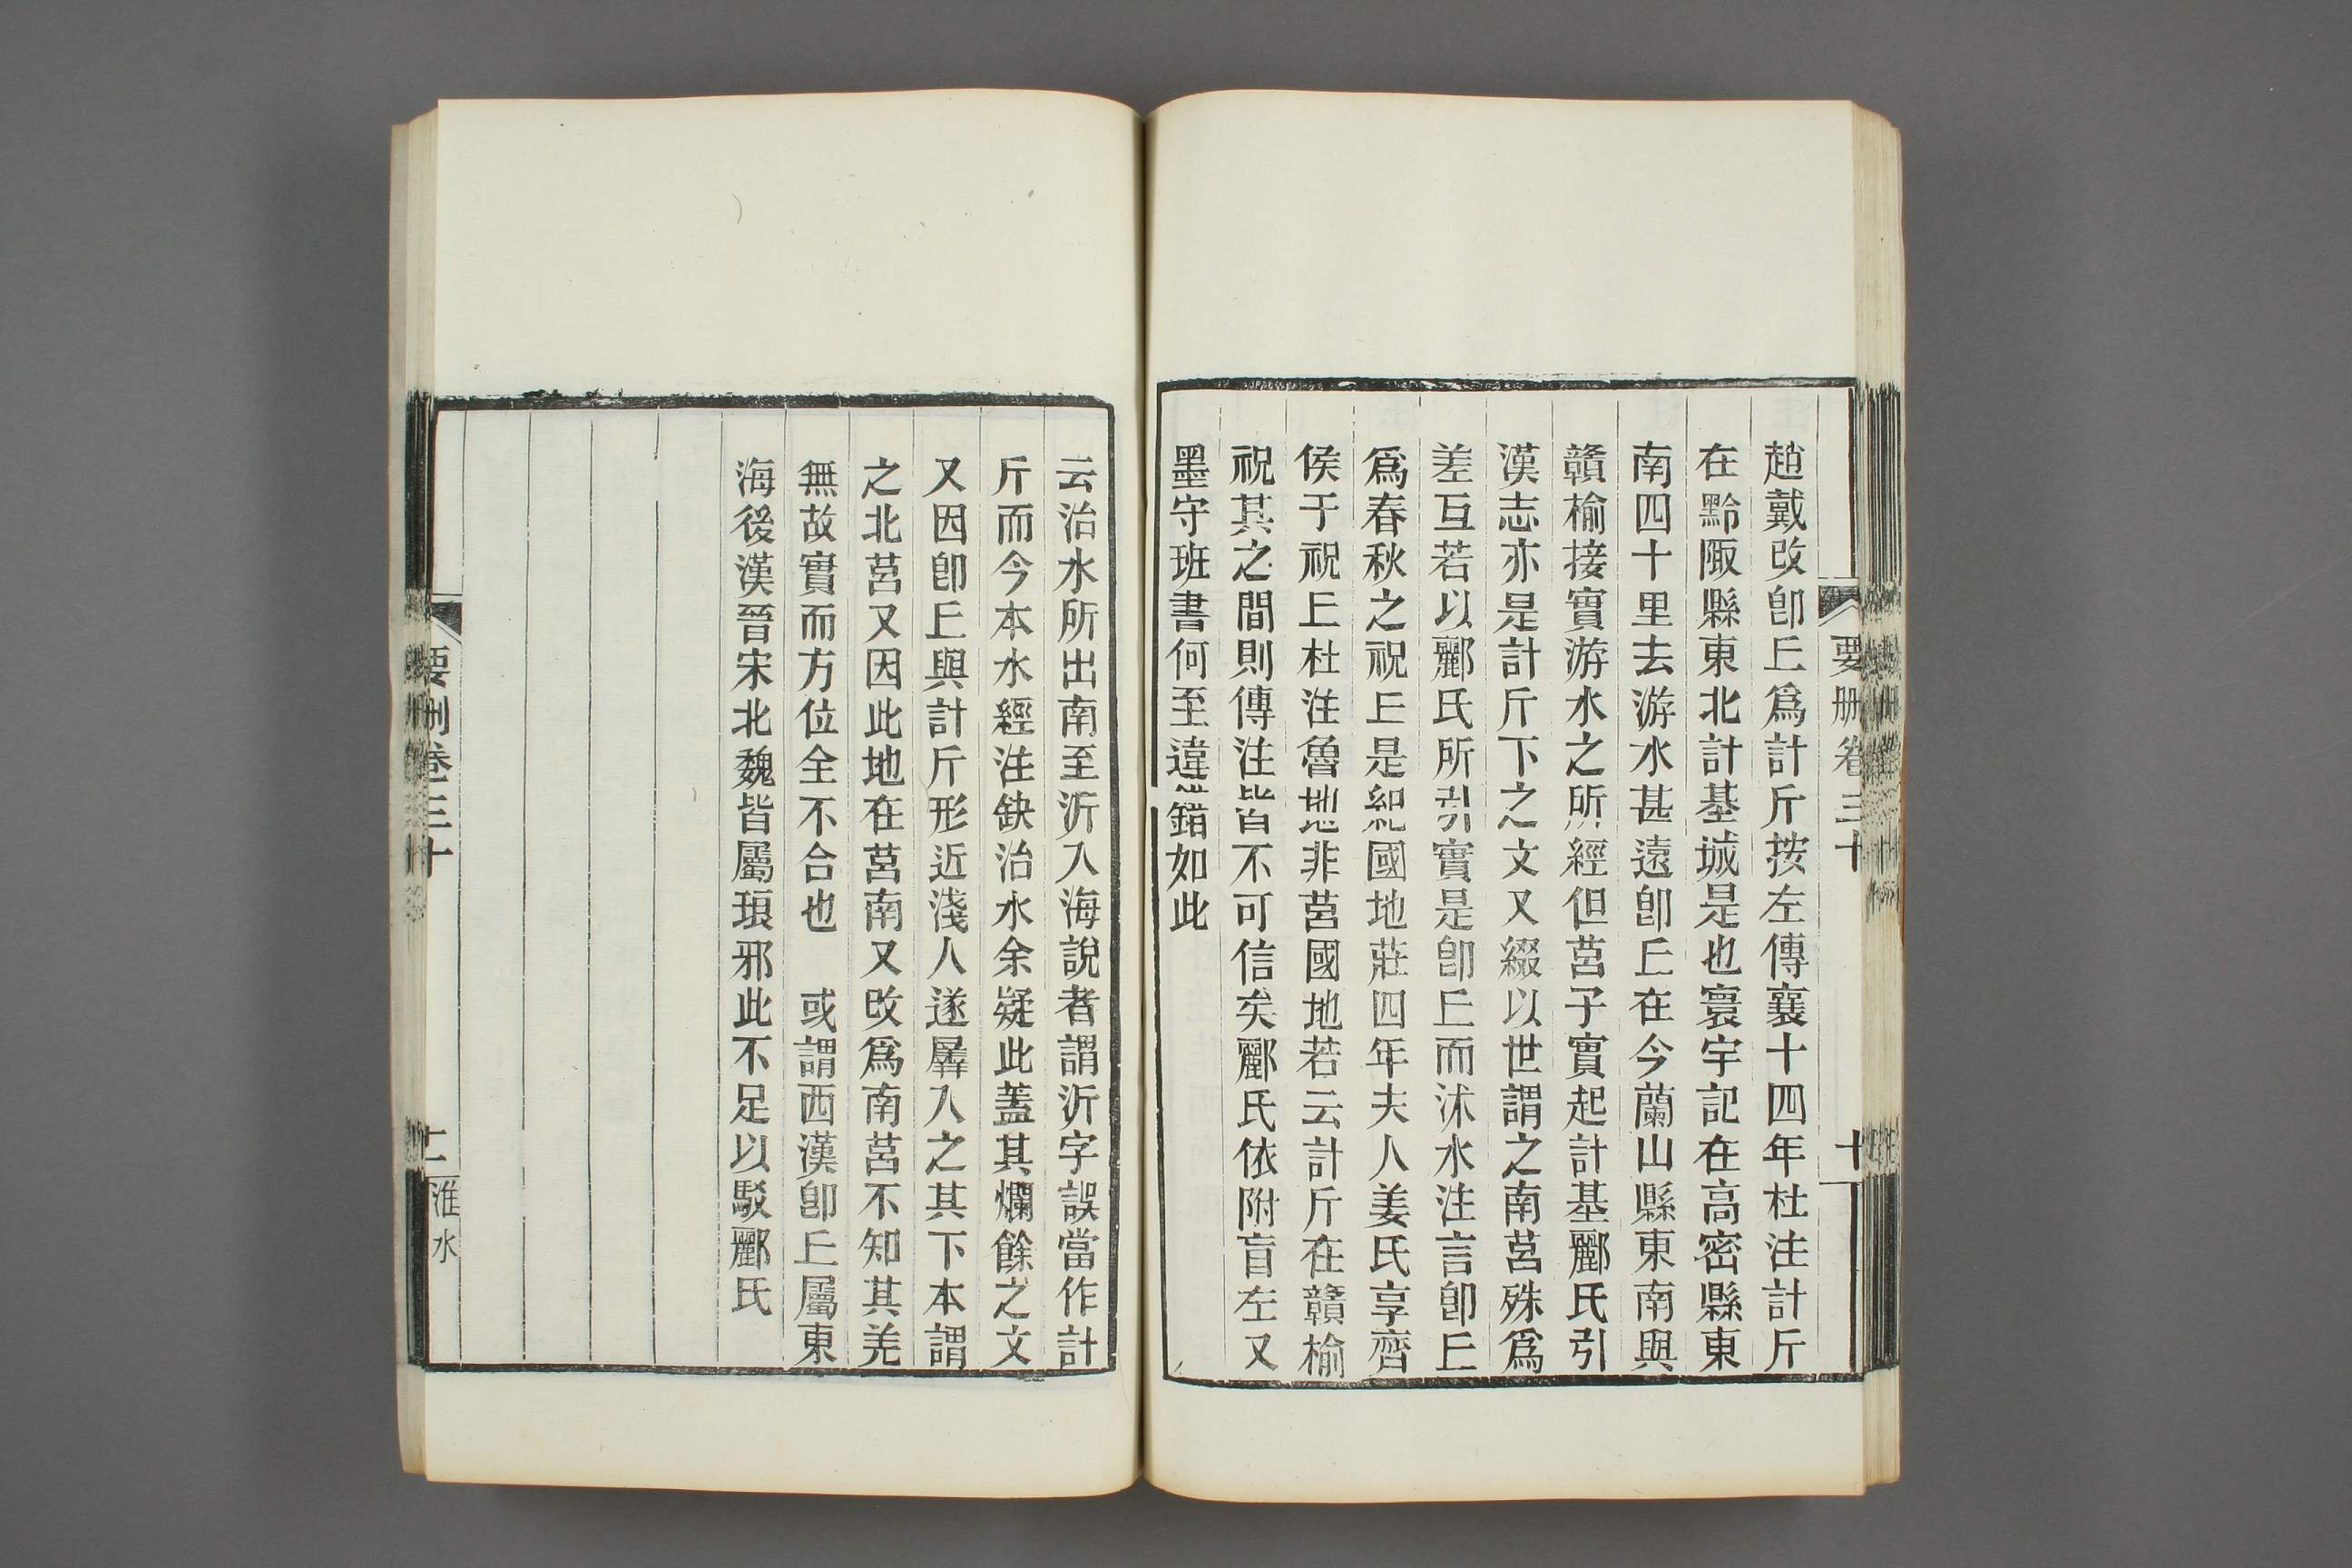 要删卷三十 十
趙戴改卽丘爲計斤按左傳襄十四年杜注計斤
在黔陬縣東北計基城是也寰宇記在高密縣東
南四十里去游水甚遠卽丘在今蘭山縣東南與
贛榆接實游水之所經但莒子實起計基酈氏引
漢志亦是計斤下之文又綴以世謂之南莒殊爲
差互若以酈氏所引實是卽丘而沭水注言卽丘
爲春秋之祝丘是紀國地莊四年夫人姜氏享齊
侯于祝丘杜注魯地非莒國地若云計斤在贛榆
祝其之間則傳注皆不可信矣酈氏依附盲左又
墨守班書何至違錯如此
云治水所出南至沂入海說者謂沂字誤當作計
斤而今本水經注缺治水余疑此蓋其爛餘之文
又因卽丘與計斤形近淺人遂羼入之其下本謂
之北莒又因此地在莒南又改爲南莒不知其羌
無故實而方位全不合也　或謂西漢卽丘屬東
海後漢晉宋北魏皆屬琅邪此不足以駁酈氏
要删卷三十 十一 淮水